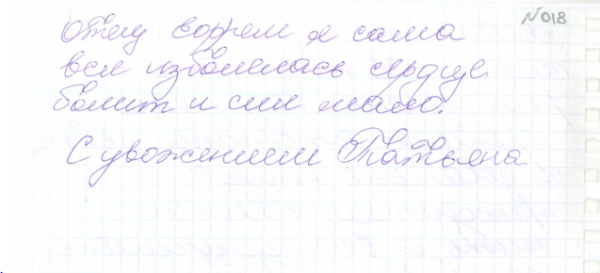 N018
отцу воррем я сама
вся изболелась сердце
болит и сил мало.
С увожением Татьяна